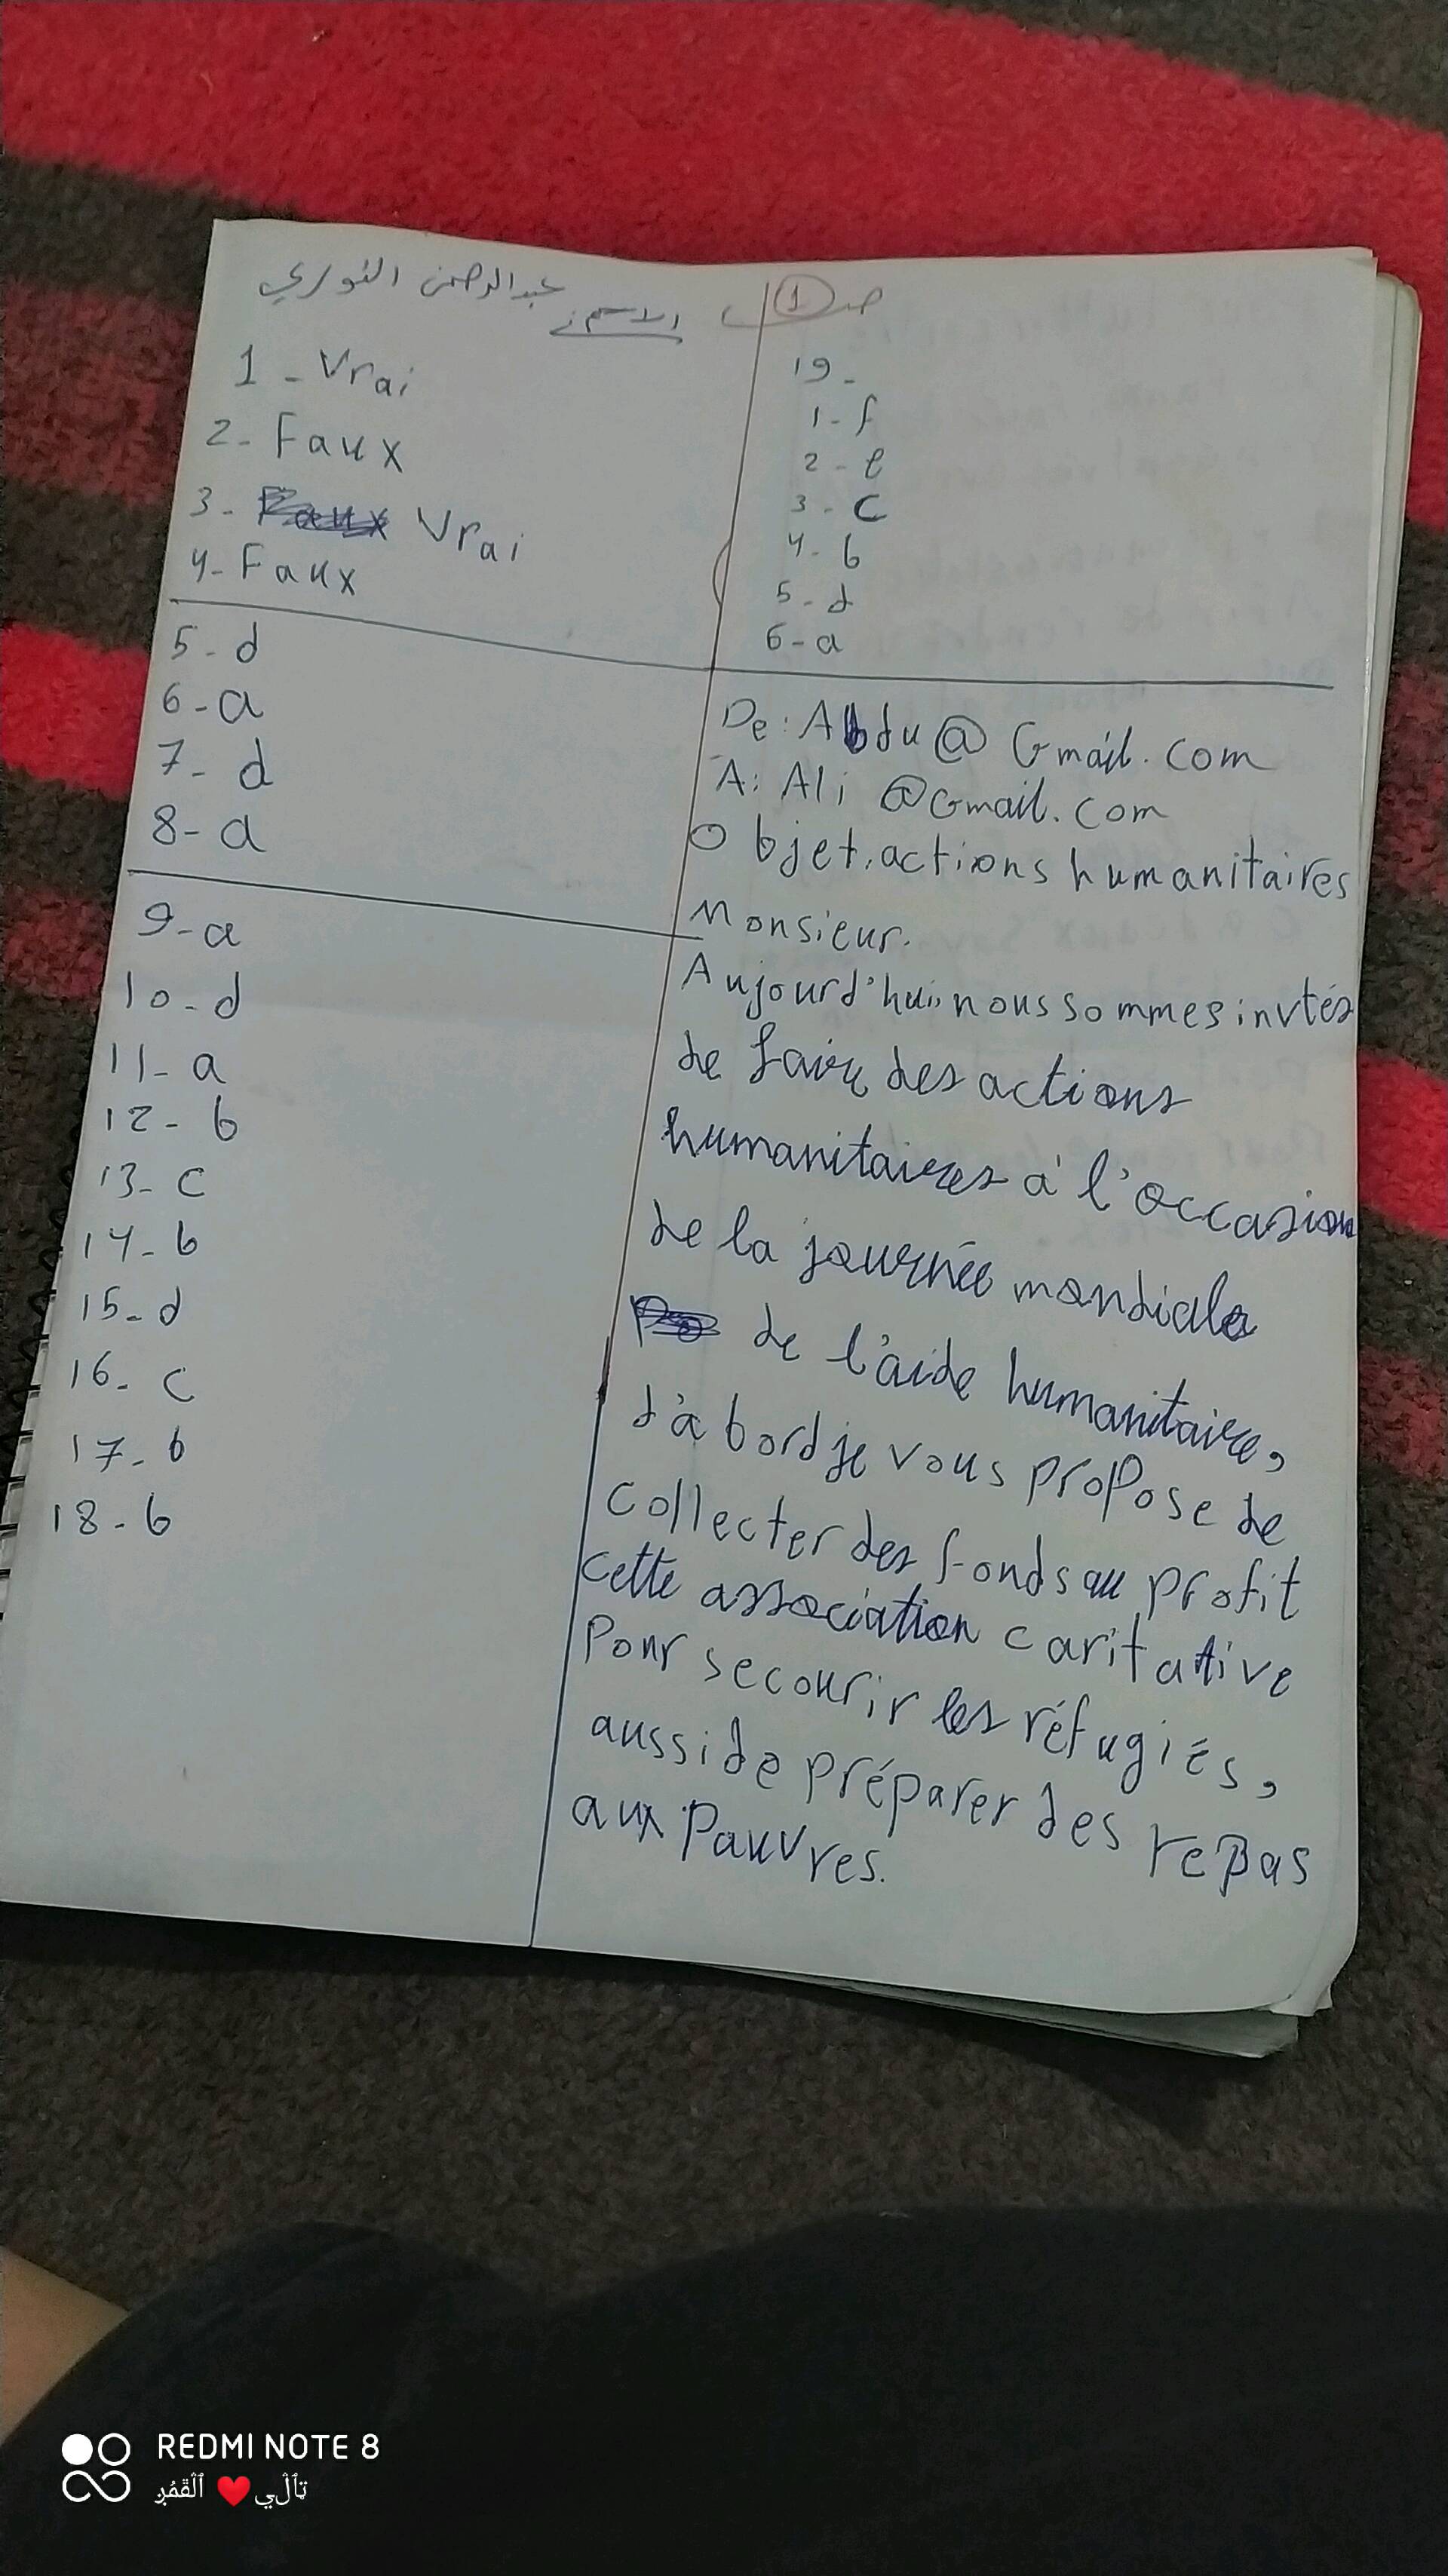 ص ①
الاسم: عبدالرحمن النوري
1 - Vrai
2 - Faux
3 - Vrai
4 - Faux
5 - d
6 - a
7 - d
8 - a
9 - a
10 - d
11 - a
12 - b
13 - c
14 - b
15 - d
16 - c
17 - b
18 - b
19 -
1 - f
2 - e
3 - c
4 - b
5 - d
6 - a
De : Abdu@Gmail.com
A : Ali @Gmail.com
Objet. actions humanitaires
Monsieur.
Aujourd'hui, nous sommes invtés
de faire des actions
humanitaires à l'occasion
de la journée mondiale
de l'aide humanitaire,
d'à bord je vous propose de
collecter des fonds au profit
cette association caritative
Pour secourir les réfugiés,
aussi de préparer des repas
aux pauvres.
REDMI NOTE 8
تٱلْي ❤ ٱلْقَمَر